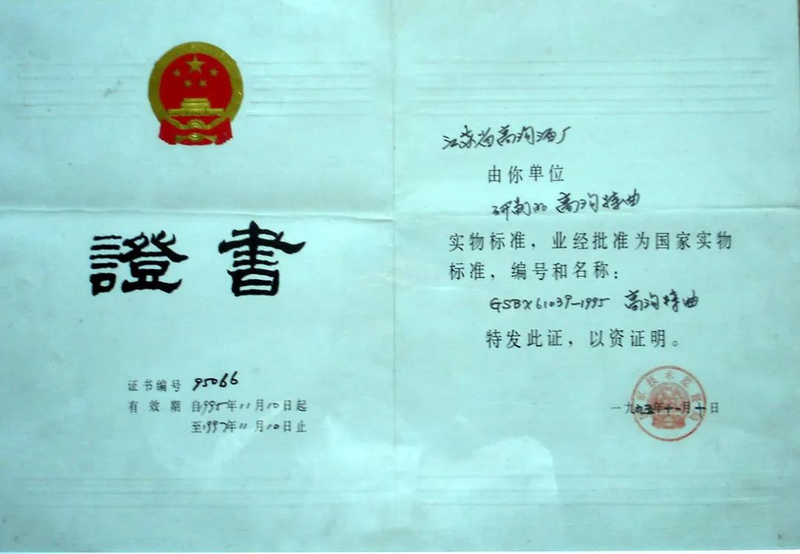 證書
证书编号 95066
有效期 自1995年11月10日起
至1997年11月10日止
江苏省高沟酒厂
由你单位
研制的 高沟特曲
实物标准，业经批准为国家实物
标准，编号和名称：
GSBX61039-1995 高沟特曲
特发此证，以资证明。
一九九五年十一月十日